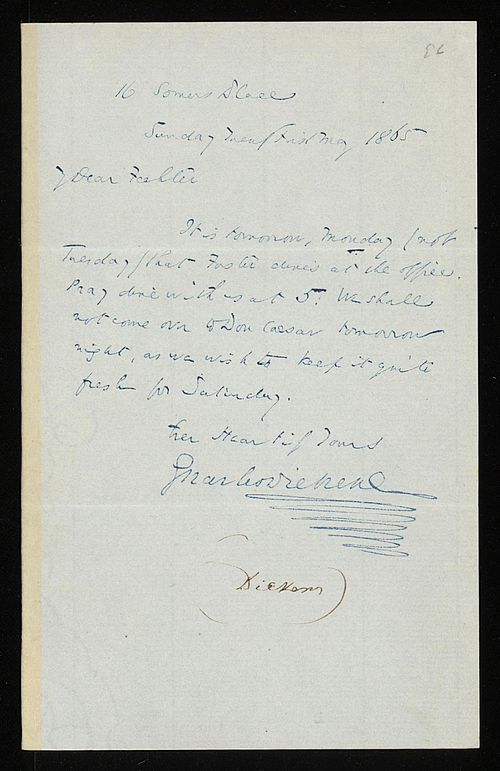 16 Somers Place
Sunday First May 1865
My Dear Fechter
It is tomorrow, Monday (not
Tuesday) that Forster dines at the office.
Pray dine with us at 5. We shall
not come over to Don Caesar tomorrow
night, as we wish to keep it quite
fresh for Saturday.
Ever Heartily Yours
Charles Dickens
(Dickens)